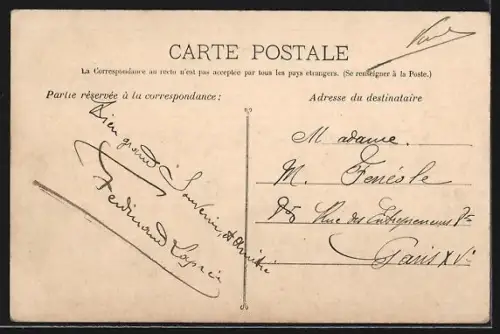 CARTE POSTALE
La Correspondance au recto n'est pas acceptée par tous les pays étrangers. (Se renseigner à la Poste.)
Partie réservée à la correspondance:
Adresse du destinataire
Bien grand Souvenir, et Amitié
Ferdinand
Madame.
M.
Rue des Entrepreneurs
Paris XV